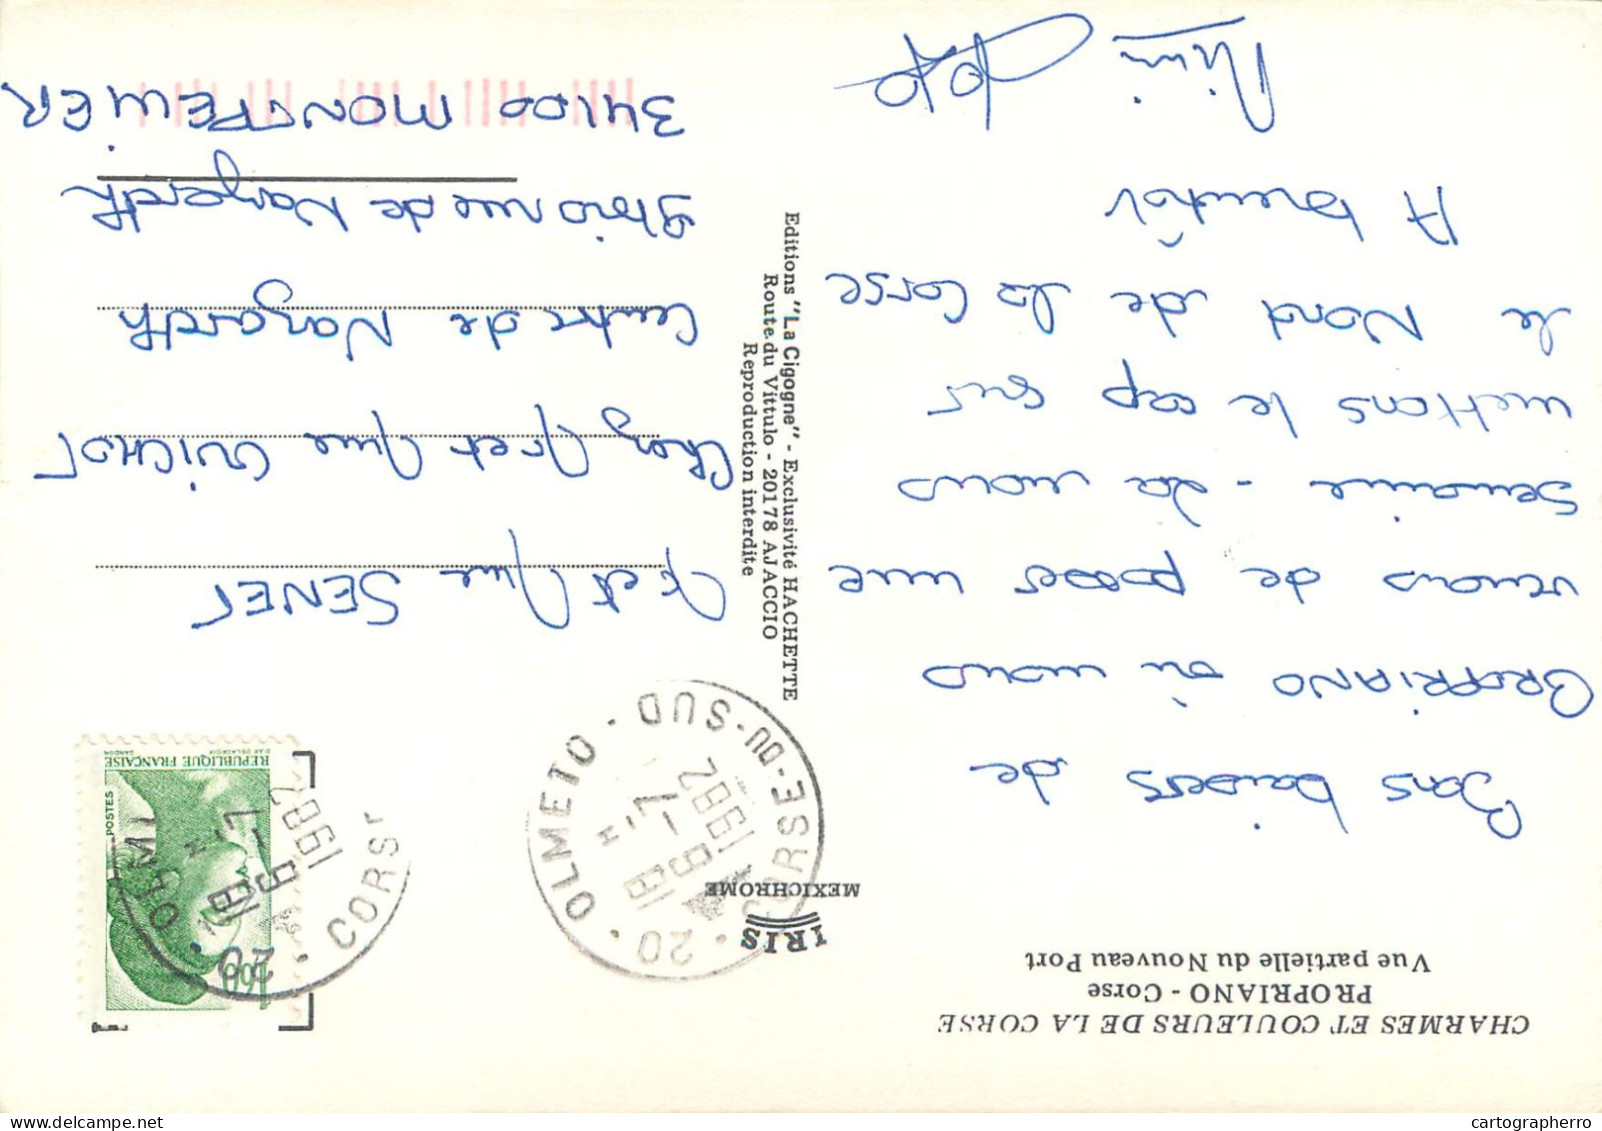 CHARMES ET COULEURS DE LA CORSE
PROPRIANO - Corse
Vue partielle du Nouveau Port
Bons baisers de
PROPRIANO où nous
venons de passer une
semaine -
mettons le cap sur
le Nord de la Corse
A bientôt
Mimi
IRIS
MEXICHROME
Editions "La Cigogne" - Exclusivité HACHETTE
Route du Vittulo - 20178 AJACCIO
Reproduction interdite
20 · OLMETO · SUD-DU-CORSE
18 H
7-9
1982
REPUBLIQUE FRANÇAISE
POSTES
1,60
D'AP. DELACROIX
GANDON
20 · CORSE
18 H
7-9
1982
Mr et Mme SENET
Chez Mr et Mme GUICHOT
Centre de Nazareth
rue de Nazareth
34100 MONTPELLIER
cartographerro